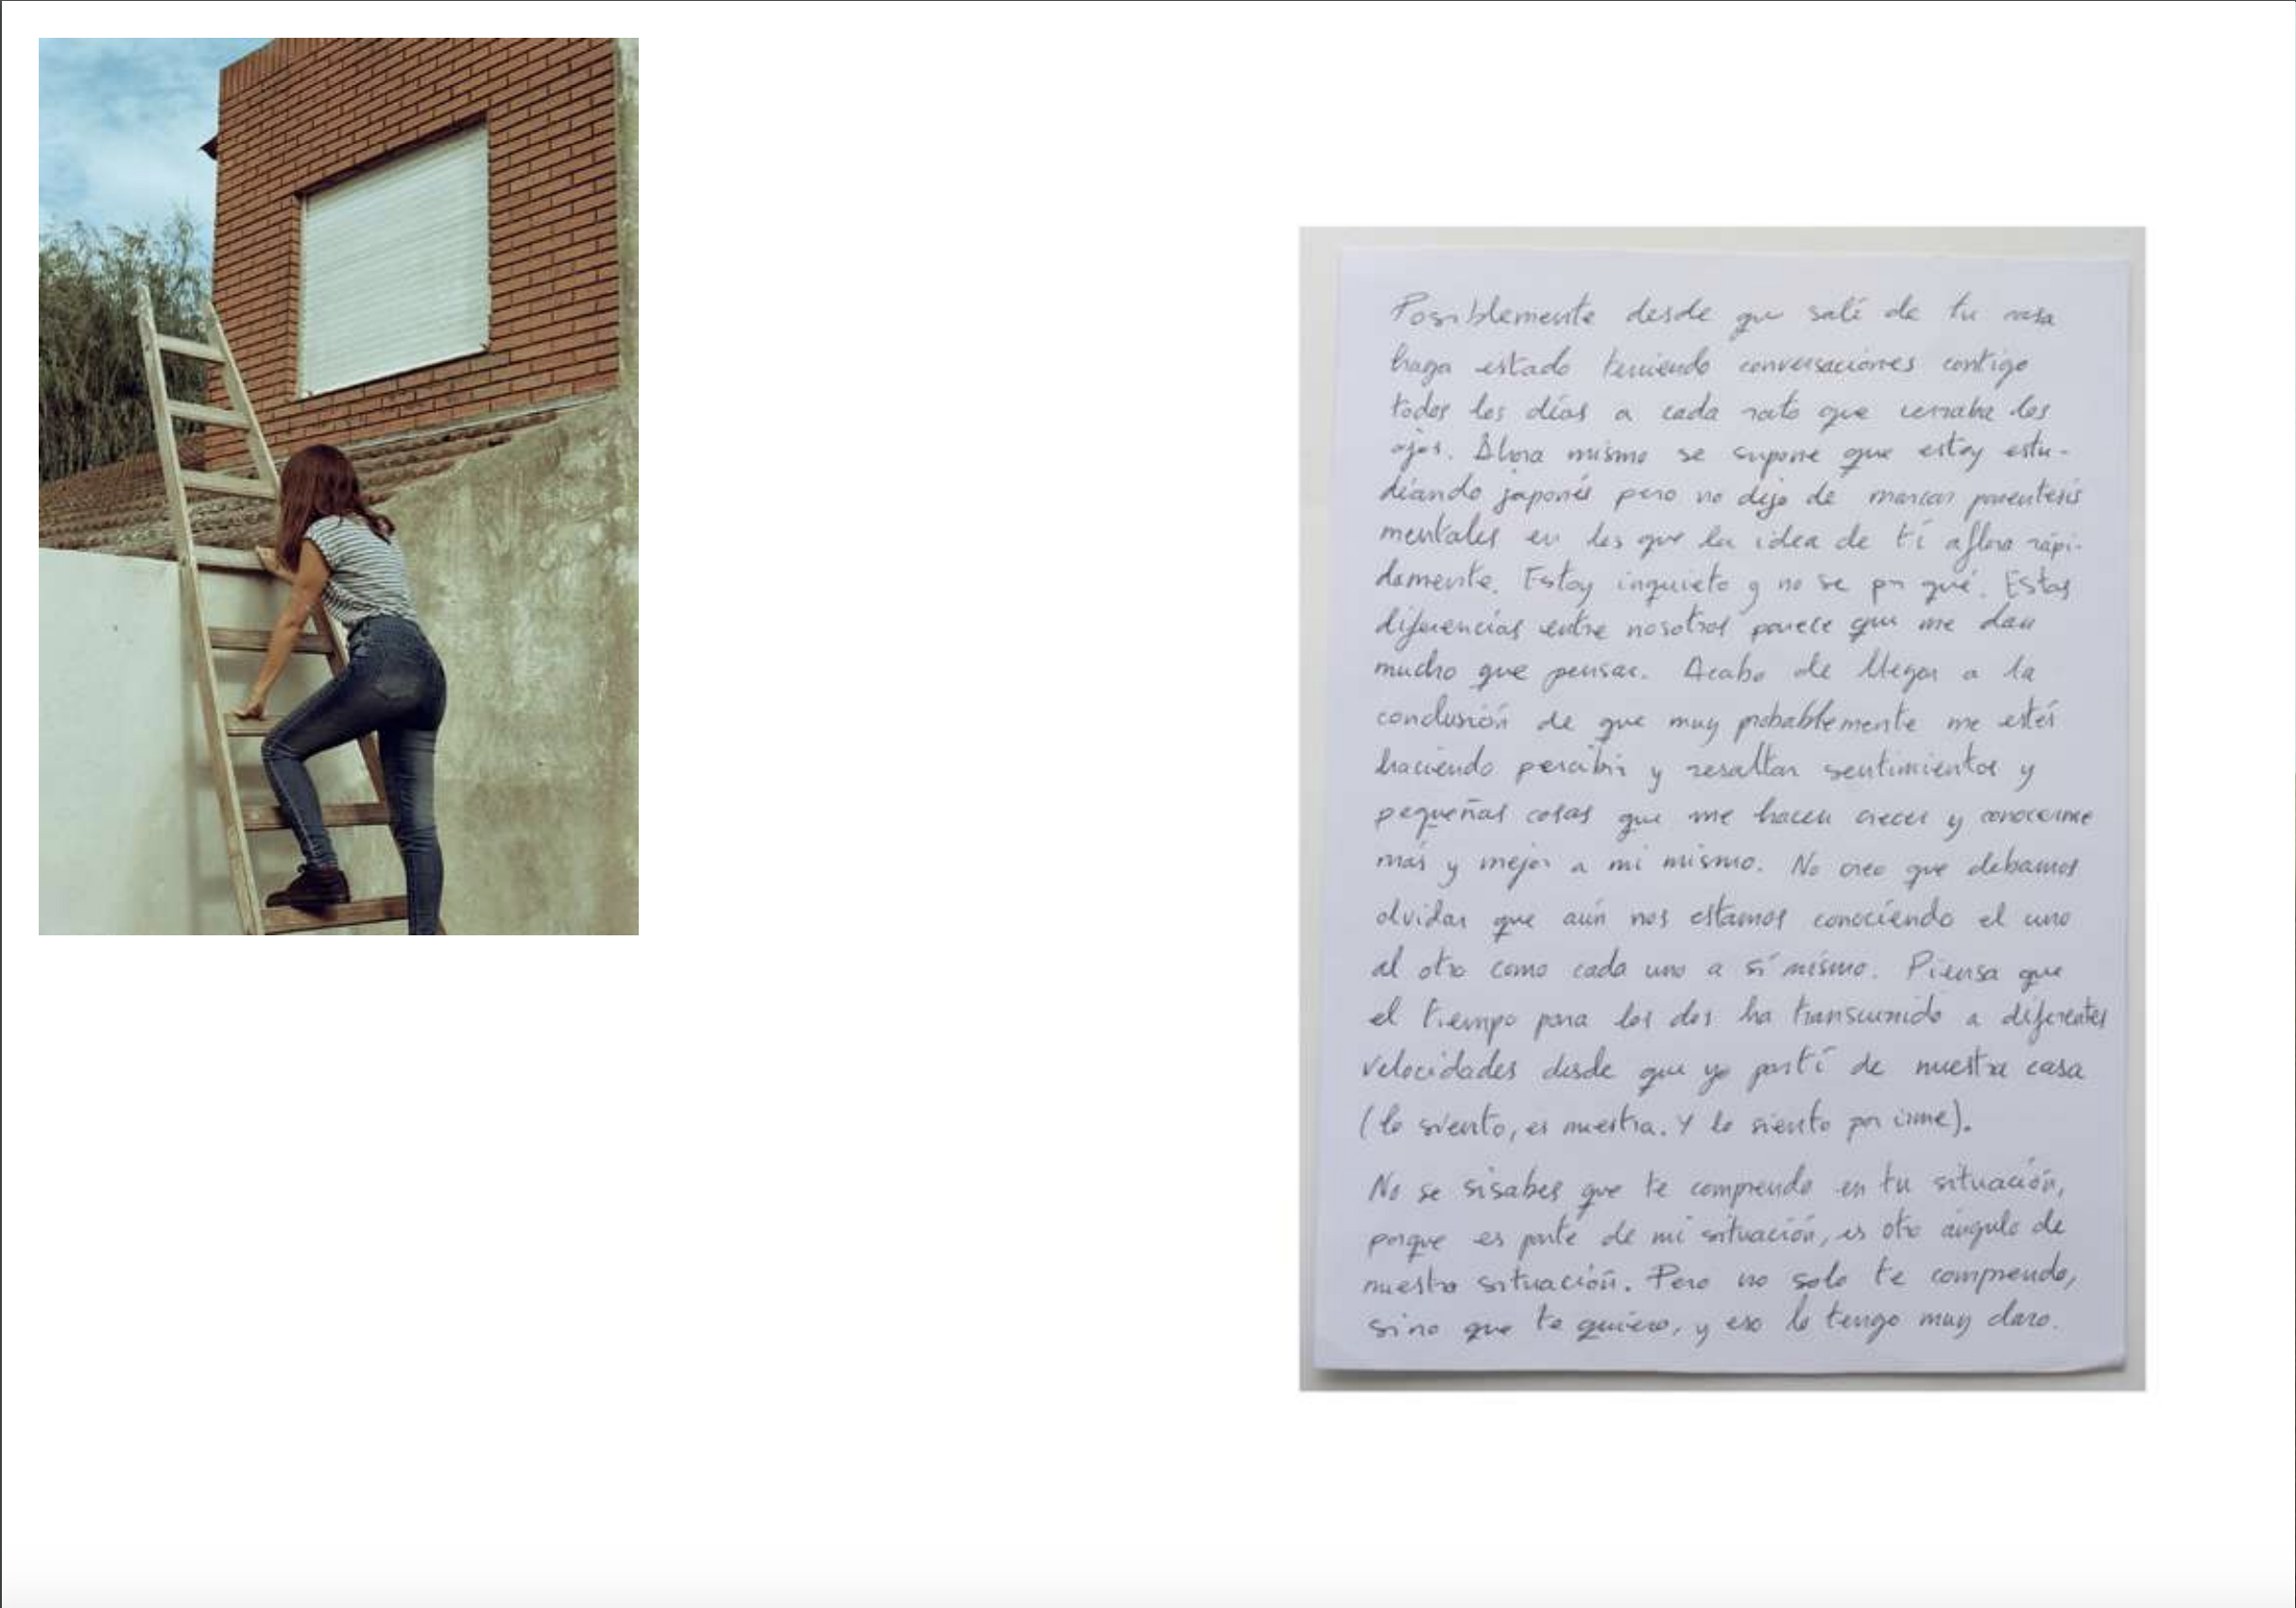 Posiblemente desde que salí de tu casa
haga estado teniendo conversaciones contigo
todos los días a cada rato que cerraba los
ojos. Ahora mismo se supone que estoy estu-
diando japonés pero no dejo de marcar parentesis
mentales en los que la idea de tí aflora rápi-
damente. Estoy inquieto y no se por qué. Estas
diferencias entre nosotros parece que me dan
mucho que pensar. Acabo de llegar a la
conclusión de que muy probablemente me estés
haciendo percibir y resaltar sentimientos y
pequeñas cosas que me hacen crecer y conocerme
más y mejor a mi mismo. No creo que debamos
olvidar que aún nos estamos conociendo el uno
al otro como cada uno a sí mismo. Piensa que
el tiempo para los dos ha transcurrido a diferentes
velocidades desde que yo partí de nuestra casa
(lo siento, es nuestra. Y lo siento por irme).
No se si sabes que te comprendo en tu situación,
porque es parte de mi situación, es otro ángulo de
nuestra situación. Pero no solo te comprendo,
sino que te quiero, y eso lo tengo muy claro.